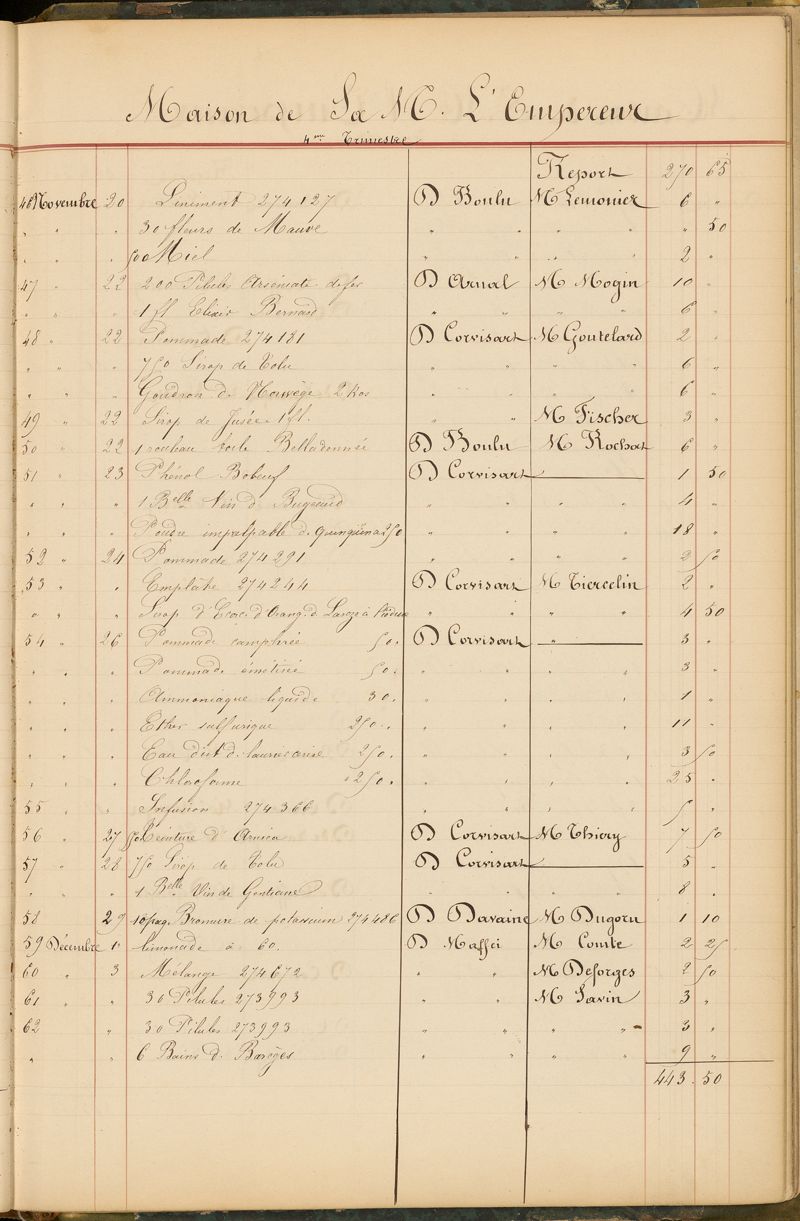 Maison de Sa M. L'Empereur
4ème Trimestre
Report 270 65
46 Novembre 20 Liniment 274127 D Boulu M Lemonier 6 "
" " " 30 fleurs de Mauve " " " 50
" " " 50 Miel " " 2 "
47 " 22 200 Pilules Arséniate de fer D Arnal M Mogin 10 "
" " " 1 fl Elixir Bernard " " 6 "
48 " 22 Pommade 274181 D Corvisart M Goutelard 2 "
" " " 750 Sirop de Tolu " " 6 "
" " " Goudron de Norwège 2 kos " " 6 "
49 " 22 Sirop de 1 fl. " " M Fischer 3 "
50 " 22 1 rouleau toile Belladonnée D Boulu M Rochat 6 "
51 " 23 Phénol Bobeuf D Corvisart 1 50
" " " 1 Belle Vin d. Bugeaud " " 4 "
" " " Poudre impalpable d. quinquina 250 " " 18 "
52 " 24 Pommade 274291 " " 2 50
53 " " Emplâtre 274244 D Corvisart M Tiercelin 2 "
" " " Sirop d'Ecorc. d'Orang. d. Laroze à l'iodure " " 4 50
54 " 26 Pommade camphrée 50. D Corvisart " 3 "
" " " Pommade émétisé 50. " " 3 "
" " " Ammoniaque liquide 30. " " 1 "
" " " Ether sulfurique 250. " " 11 "
" " " Eau dist d. lauriercerise 250. " " 3 50
" " " Chloroforme 250. " " 25 "
55 " " Infusion 274366 " " 5 "
56 " 27 50 Teinture d'Arnica D Corvisart M Thiory 7 50
57 " 28 750 Sirop de Tolu D Corvisart 5 "
" " " 1 Belle Vin de Gentiane " " 8 "
58 " 29 10 paq. Bromure de potassium 274486 D Davaine M Dugoru 1 10
59 Décembre 1er limonade à 60. D Maffei M Comte 2 25
60 " 3 Mélange 274672 " " M Deforges 2 50
61 " " 30 Pilules 273993 " " M Savin 3 "
62 " 30 Pilules 273993 " " " " 3 "
" " 6 Bains d. Barèges " " " " 9 "
443. 50